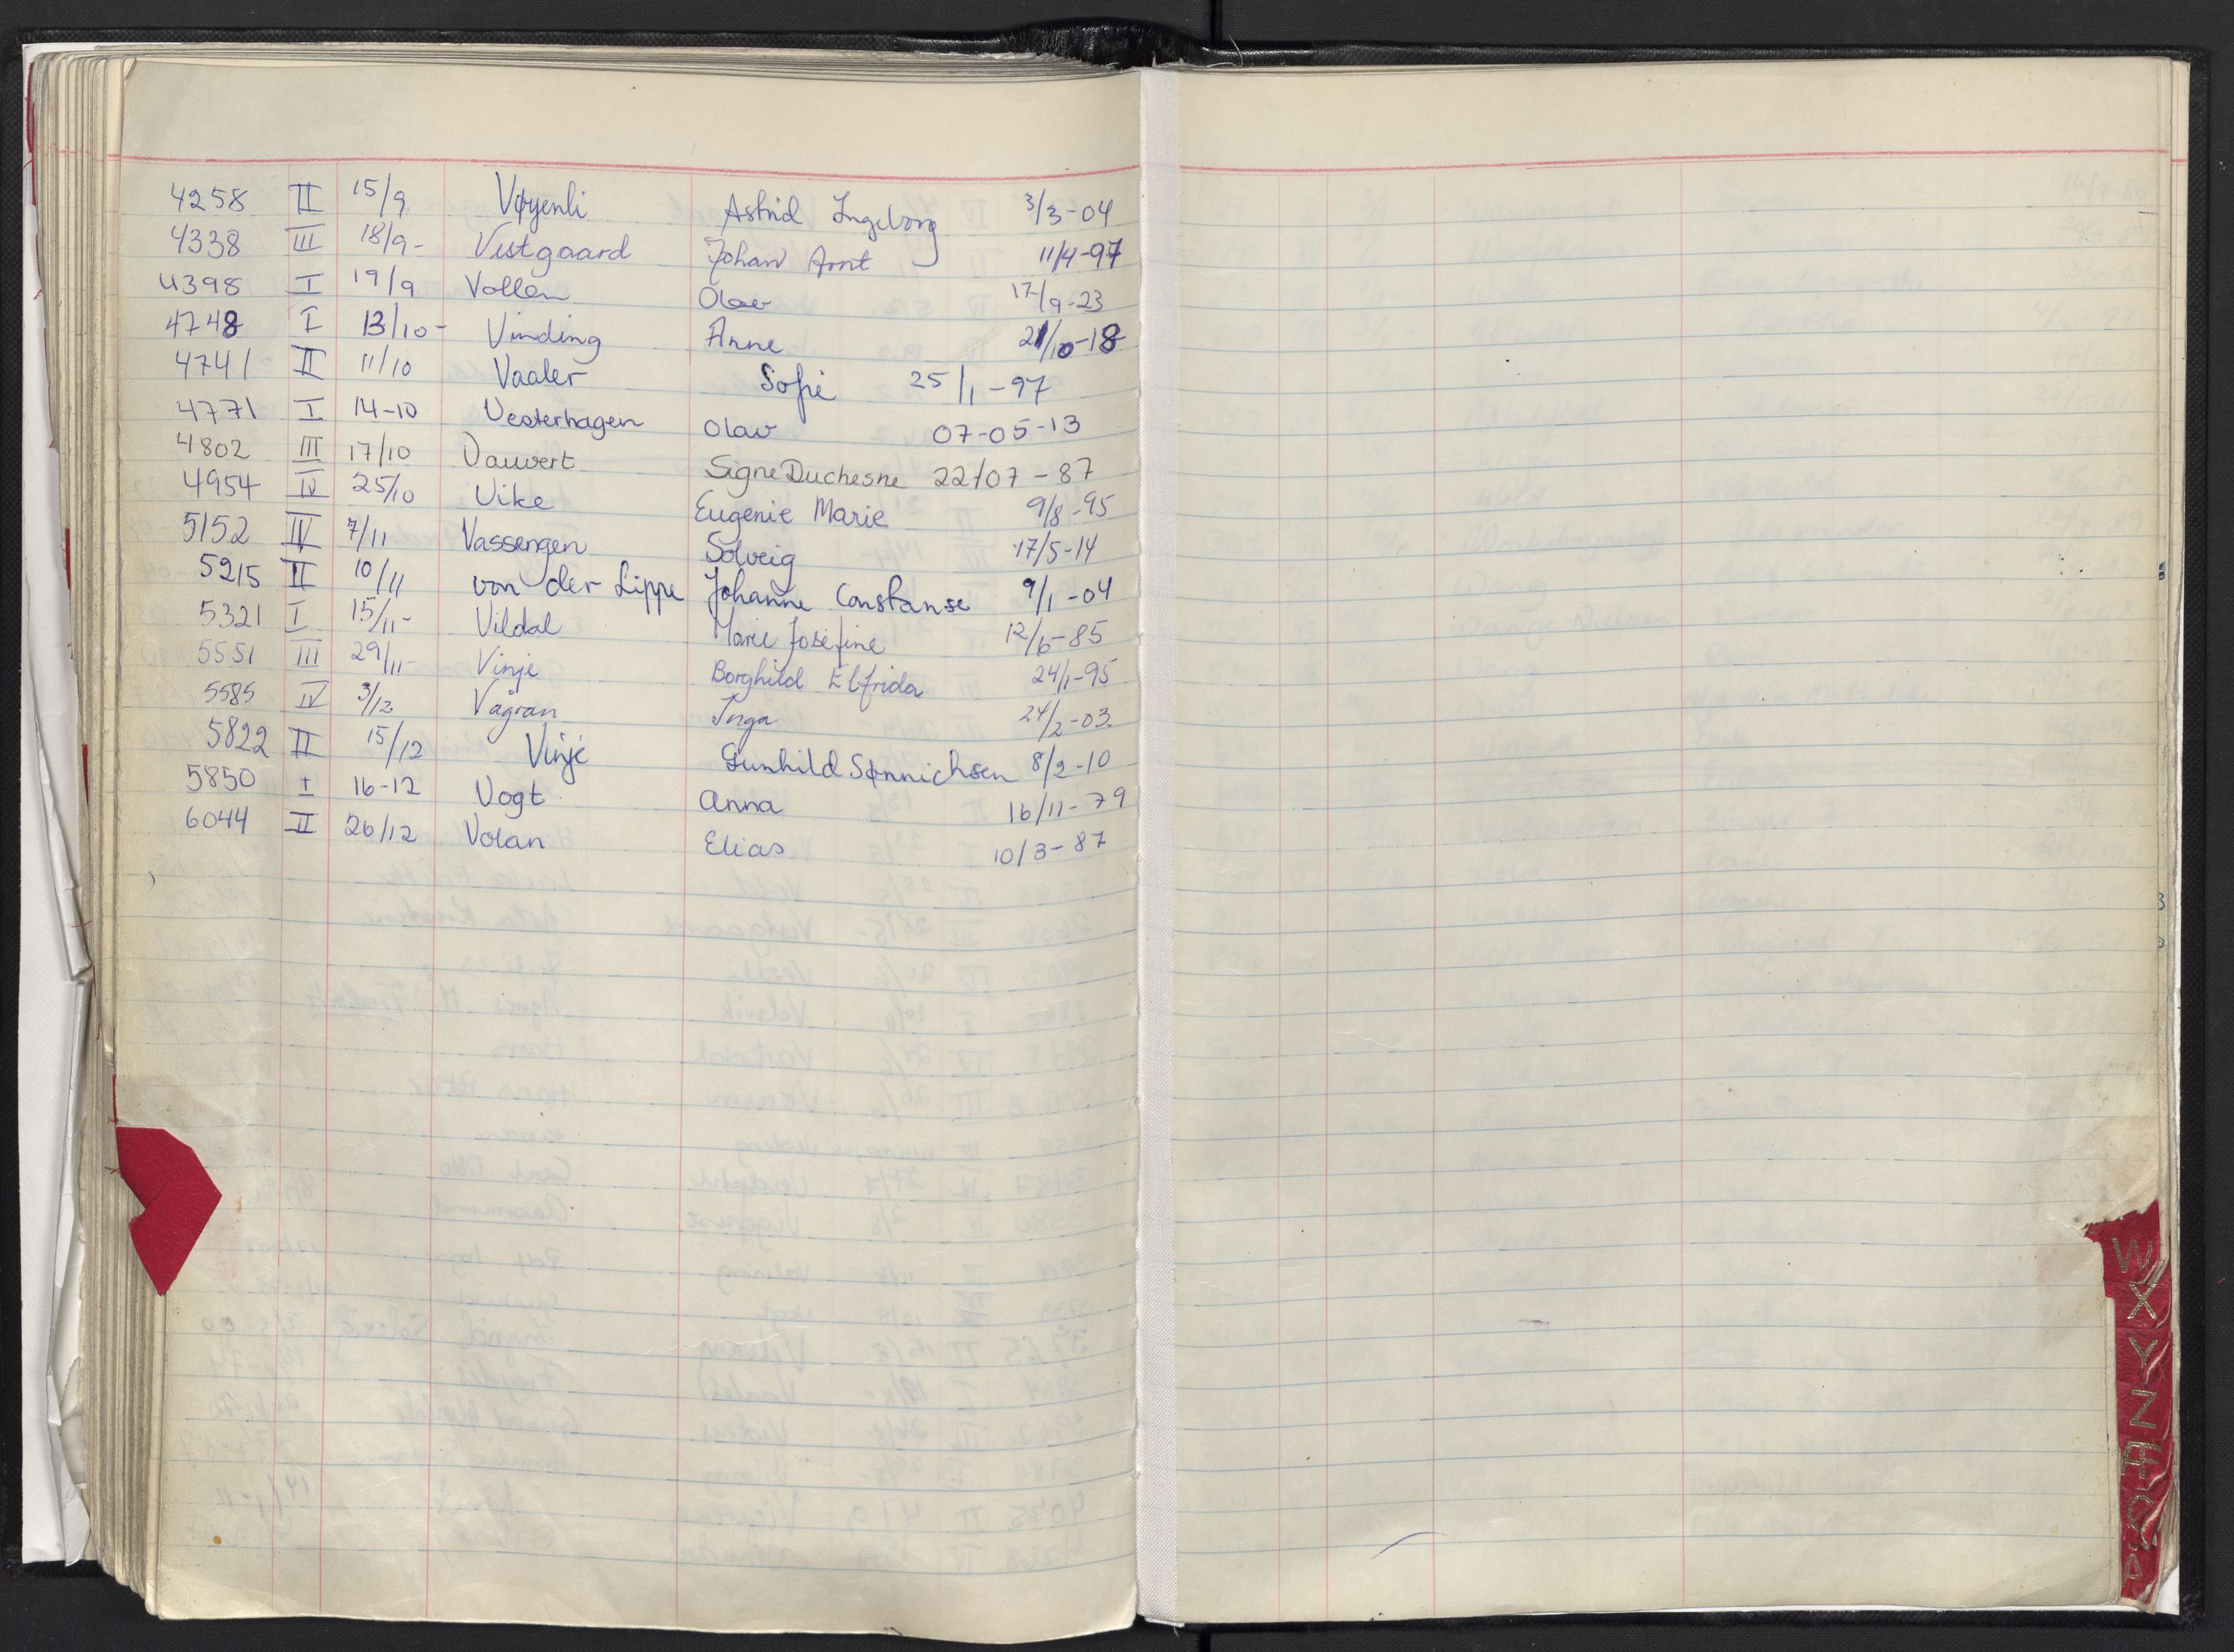 4258 II 15/9 Vøyenli Astrid Ingeborg 3/3-04
4338 III 18/9- Vestgaard Johan Arnt 11/4-97
4398 I 19/9 Vollen Olav 17/9-23
4748 I 13/10- Vinding Anne 21/10-18
4741 II 11/10 Vaaler Sofie 25/1-97
4771 I 14-10 Vesterhagen Olav 07-05-13
4802 III 17/10 Vauvert Signe Duchesne 22/07-87
4954 IV 25/10 Vike Eugenie Marie 9/8-95
5152 IV 7/11 Vassengen Solveig 17/5-14
5215 II 10/11 von der Lippe Johanne Constanse 9/1-04
5321 I 15/11- Vildal Marie Josefine 12/6-85
5551 III 29/11- Vinje Borghild Elfrida 24/1-95
5585 IV 3/12 Vågran Inga 24/2-03
5822 II 15/12 Vinje Gunhild Sønnichsen 8/2-10
5850 I 16-12 Vogt Anna 16/11-79
6044 II 26/12 Volan Elias 10/3-87
W
X
Y
Z
Æ
Ø
Å